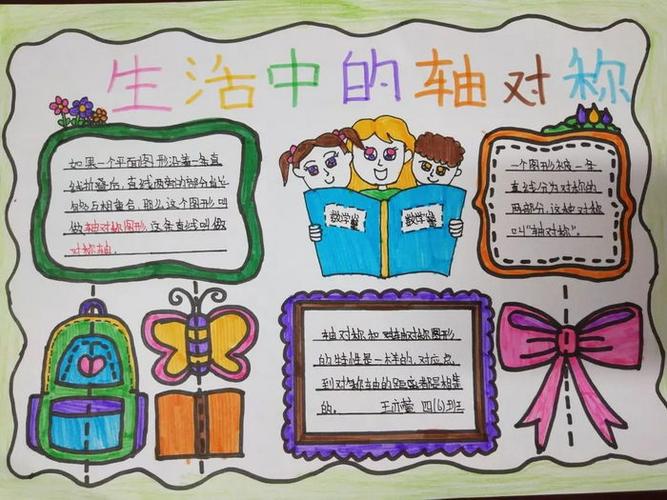 生活中的轴对称
如果一个平面图形沿着一条直
线折叠后,直线两旁的部分能
够互相重合,那么这个图形叫
做轴对称图形,这条直线叫做
对称轴。
数学
数学
一个图形被一条
直线分为对称的
两部分,这种对称
叫“轴对称”。
轴对称和轴对称图形
的特性是一样的,对应点
到对称轴的距离都是相等
的。 王亦萱 四(6)班